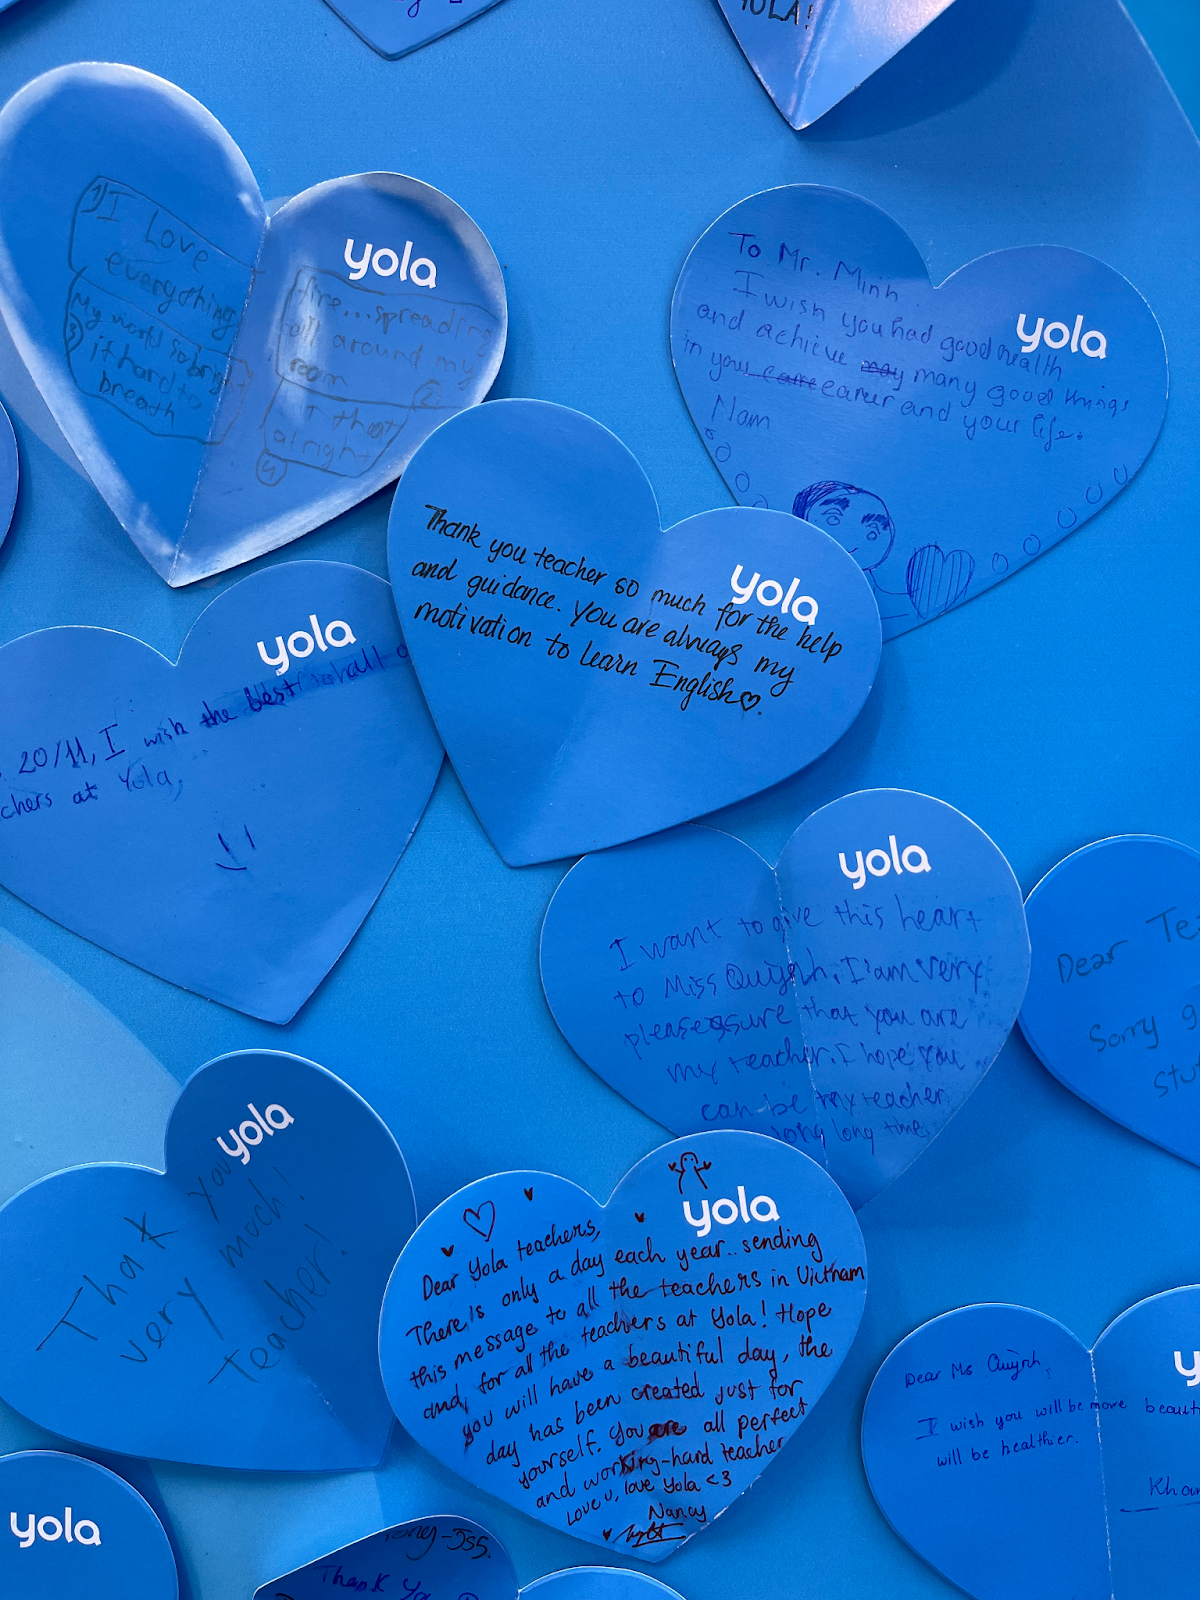 YOLA!
yola
1) I Love
everything
fire...spreading
all around my
room
2
My world so bright
3 it hard to
breath
I that
alright
4
To Mr. Minh
yola
I wish you had good health
and achieve may many good things
in your care career and your life.
Nam
yola
Thank you teacher so much for the help
and guidance. You are always my
motivation to learn English
yola
20/11, I wish the best
chers at Yola,
yola
I want to give this heart
to Miss Quỳnh. I'am very
pleasesure that you are
my teacher. I hope you
can be my teacher
long long time
Dear Te
Sorry g
stu
yola
Thak you
very much!
teacher!
yola
Dear Yola teachers,
There is only a day each year.. sending
this message to all the teachers in Vietnam
and, for all the teachers at Yola! Hope
you will have a beautiful day, the
day has been created just for
yourself. You are all perfect
and working-hard teacher
Love u, love Yola <3
Nancy
y
Dear Ms Quỳnh,
I wish you will be more beauti
will be healthier.
Khan
yola
-Js5.
Thank Yo